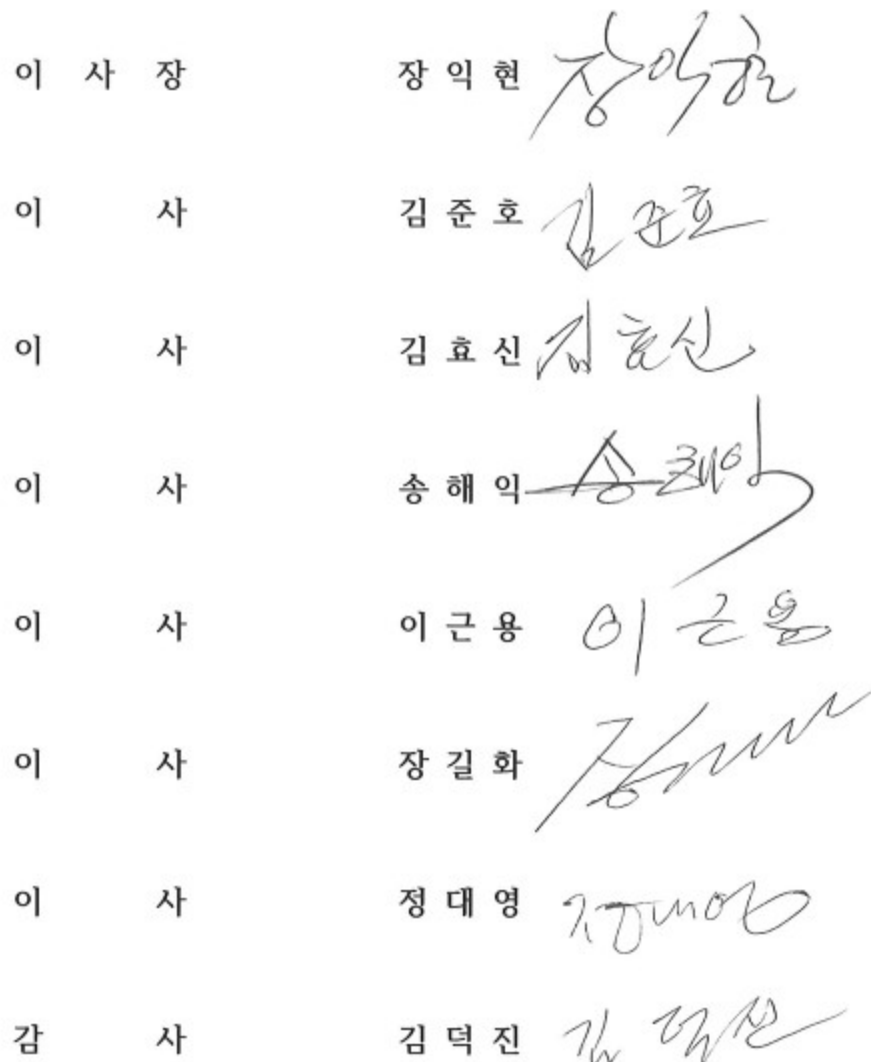 이 사 장 장 익 현 장익현
이 사 김 준 호 김준호
이 사 김 효 신 김효신
이 사 송 해 익 송해익
이 사 이 근 용 이근용
이 사 장 길 화 장
이 사 정 대 영 정대영
감 사 김 덕 진 김덕진